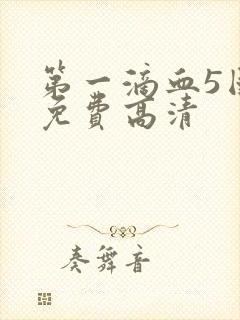 第一滴血5国
免费高清
奏舞音